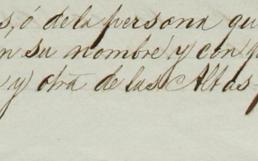 s, ó de la persona qu
n su nombre y con p
y otra de las Altas